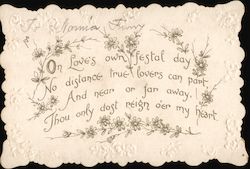 To Norma
On Love's own festal day
No distance true lovers can part
And near or far away.
Thou only dost reign o'er my heart